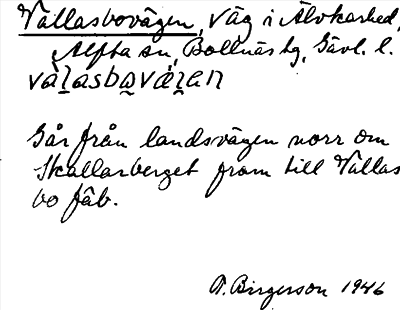 Vallasbovägen, väg i Älvkarhed,
Alfta sn, Bollnäs tg, Gävl. l.
valasbovägen
Går från landsvägen norr om
Skallarberget fram till Vallas
bo fäb.
P. Birgerson 1946